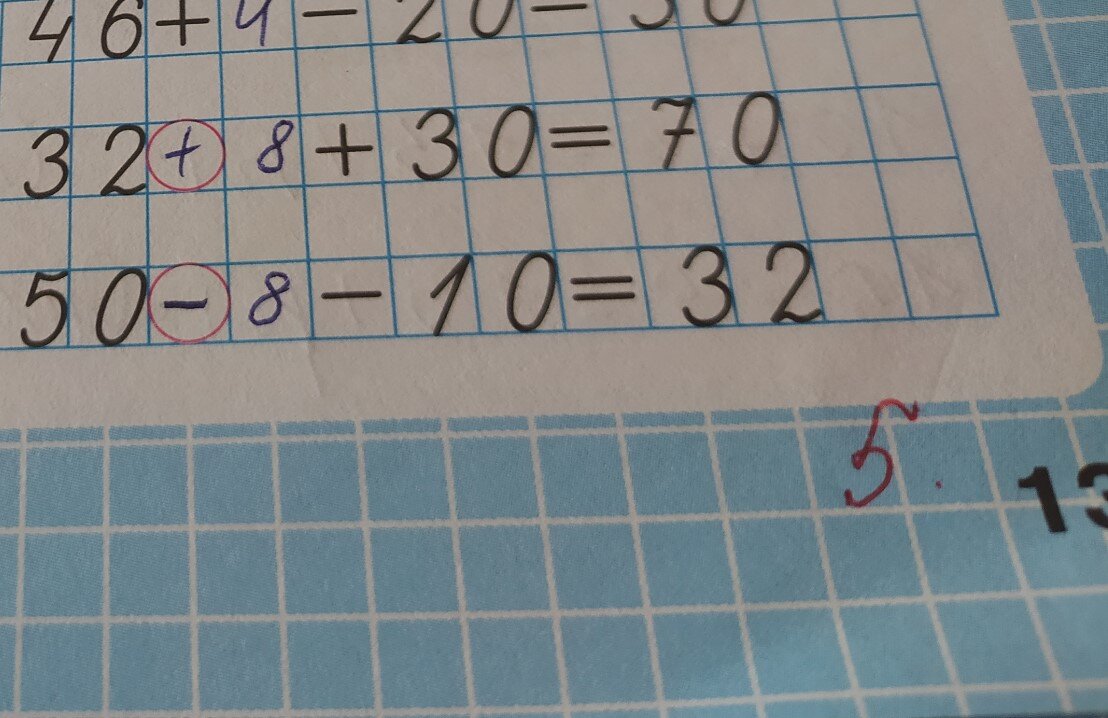 46+4-20=30
32+8+30=70
50-8-10=32
5.
13